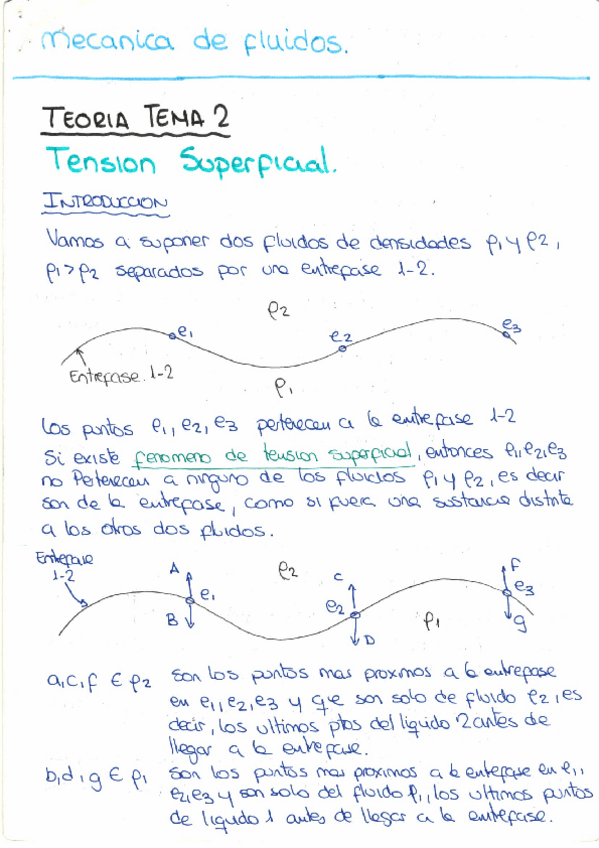 mecanica de fluidos.
TEORIA TEMA 2
Tension Superficial.
INTRODUCCION
Vamos a suponer dos fluidos de densidades ρ1 y ρ2,
ρ1>ρ2 separados por una entrefase 1-2.
ρ2
e1
e2
e3
Entrefase 1-2
ρ1
Los puntos e1, e2, e3 pertenecen a la entrefase 1-2
Si existe fenomeno de tension superficial, entonces e1, e2, e3
no Pertenecen a ninguno de los fluidos ρ1 y ρ2, es decir
son de la entrefase, como si fuera una sustancia distinta
a los otros dos fluidos.
Entrefase
1-2
A
ρ2
C
F
e1
e2
e3
B
ρ1
g
D
a,c,f ∈ ρ2 son los puntos mas proximos a la entrefase
en e1, e2, e3 y que son solo de fluido ρ2, es
decir, los ultimos ptos del liquido 2 antes de
llegar a la entrefase.
b,d,g ∈ ρ1 son los puntos mas proximos a la entrefase en e1,
e2, e3 y son solo del fluido ρ1, los ultimos puntos
de liquido 1 antes de llegar a la entrefase.